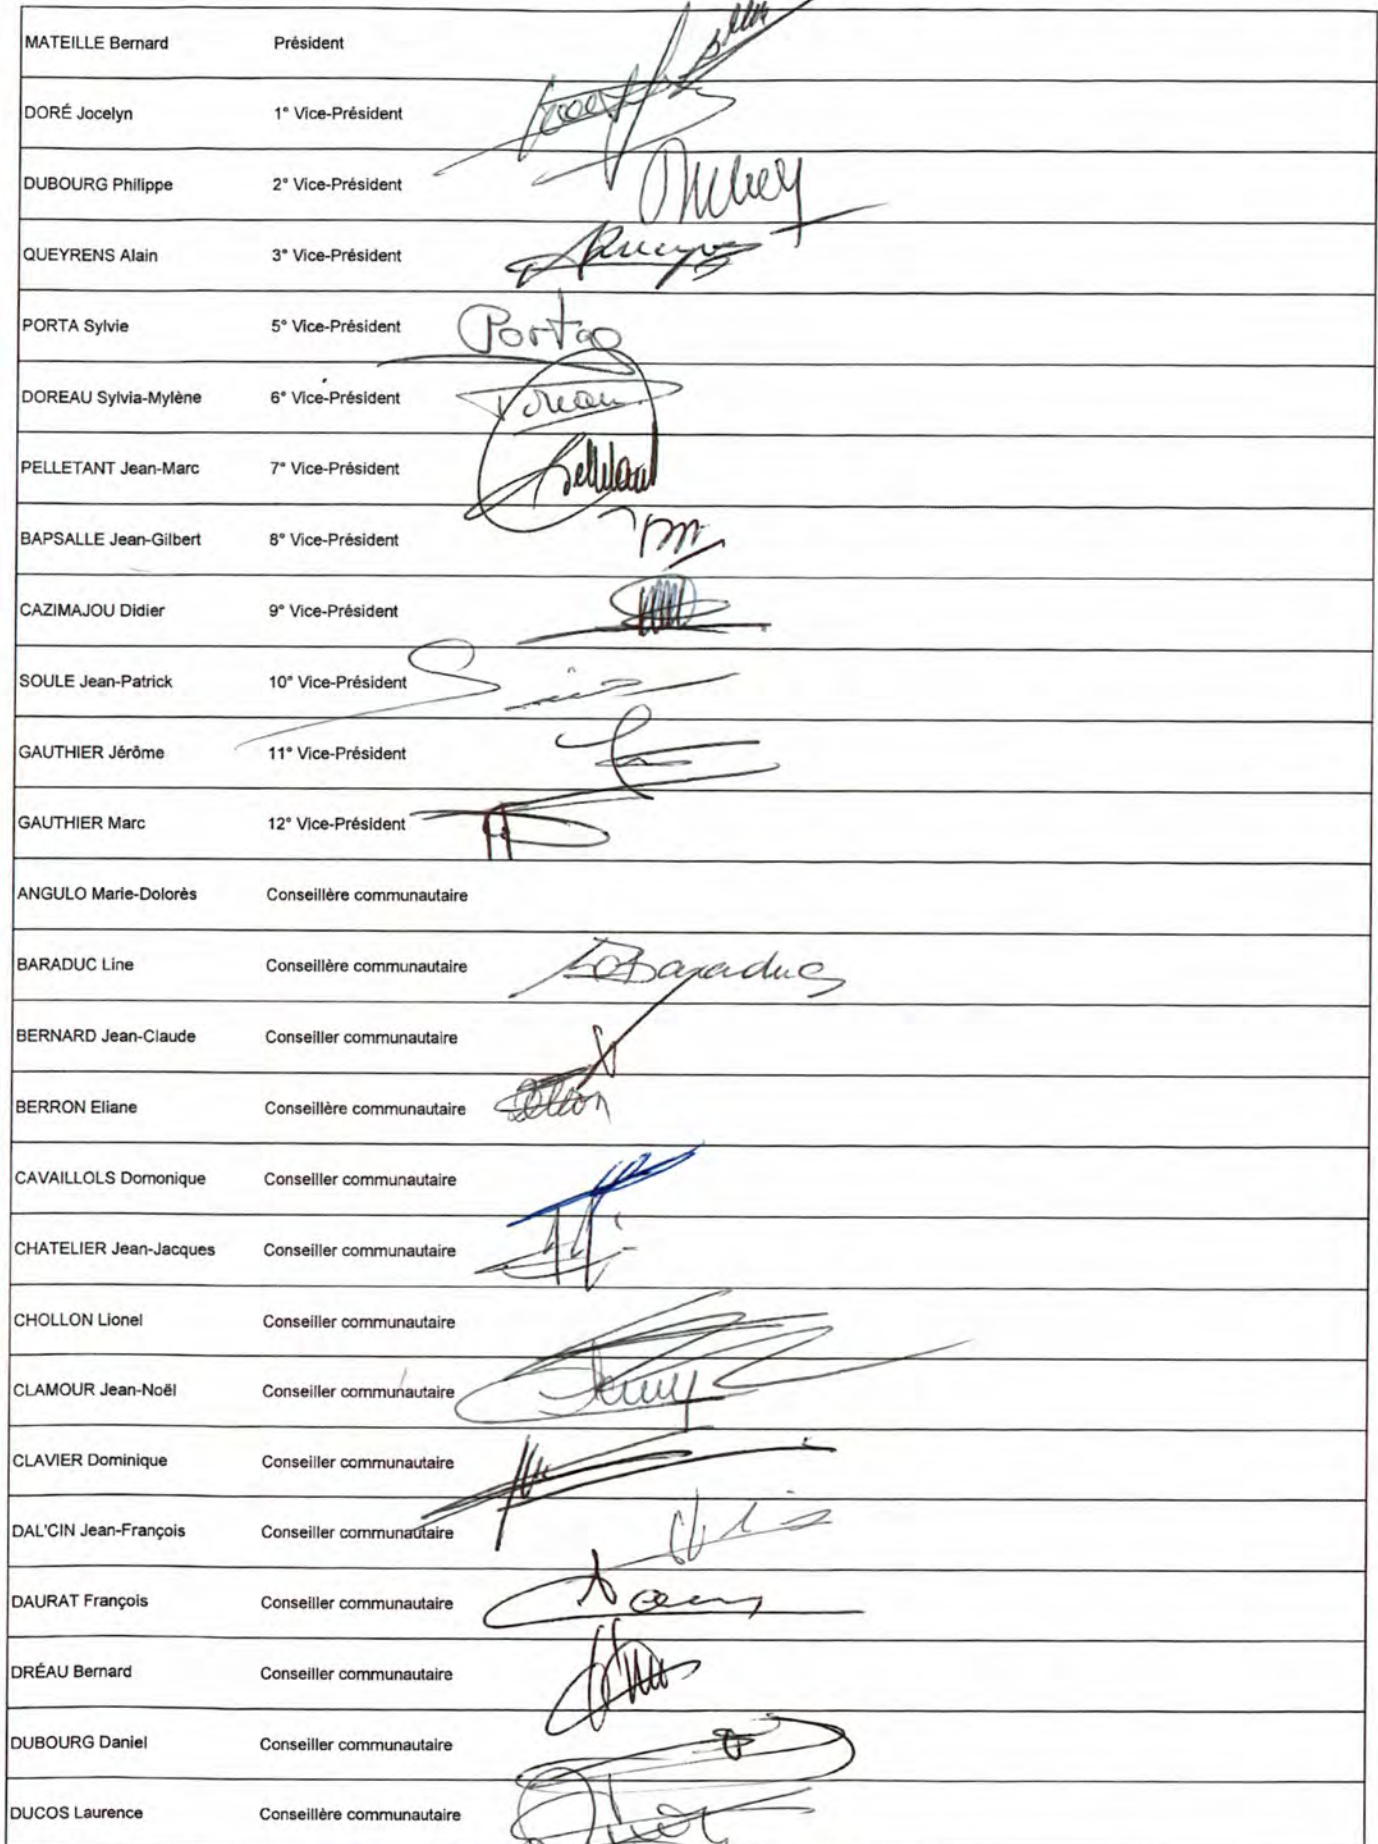 MATEILLE Bernard Président
DORÉ Jocelyn 1° Vice-Président
DUBOURG Philippe 2° Vice-Président
QUEYRENS Alain 3° Vice-Président
PORTA Sylvie 5° Vice-Président Porta
DOREAU Sylvia-Mylène 6° Vice-Président Doreau
PELLETANT Jean-Marc 7° Vice-Président
BAPSALLE Jean-Gilbert 8° Vice-Président
CAZIMAJOU Didier 9° Vice-Président
SOULE Jean-Patrick 10° Vice-Président
GAUTHIER Jérôme 11° Vice-Président
GAUTHIER Marc 12° Vice-Président
ANGULO Marie-Dolorès Conseillère communautaire
BARADUC Line Conseillère communautaire Baraduc
BERNARD Jean-Claude Conseiller communautaire
BERRON Eliane Conseillère communautaire
CAVAILLOLS Domonique Conseiller communautaire
CHATELIER Jean-Jacques Conseiller communautaire
CHOLLON Lionel Conseiller communautaire
CLAMOUR Jean-Noël Conseiller communautaire
CLAVIER Dominique Conseiller communautaire
DAL'CIN Jean-François Conseiller communautaire
DAURAT François Conseiller communautaire
DRÉAU Bernard Conseiller communautaire
DUBOURG Daniel Conseiller communautaire
DUCOS Laurence Conseillère communautaire